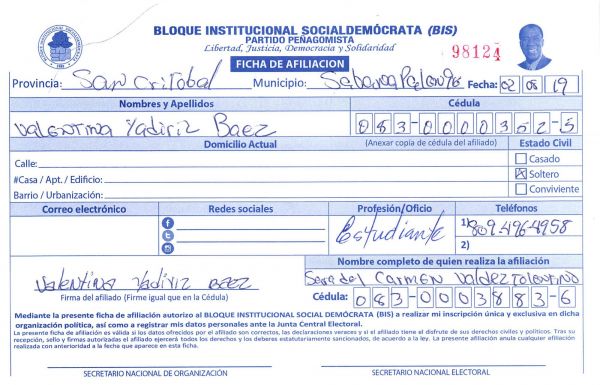 BLOQUE INSTITUCIONAL SOCIALDEMÓCRATA (BIS)
PARTIDO PEÑAGOMISTA
Libertad, Justicia, Democracia y Solidaridad
FICHA DE AFILIACION
98124
Provincia: San Cristobal Municipio: Sabana Palenque Fecha: 02 08 19
Nombres y Apellidos Cédula
Valentina Yadiriz Baez 083-0000362-5
Domicilio Actual (Anexar copia de cédula del afiliado) Estado Civil
Calle: Casado
#Casa / Apt. / Edificio: Soltero
Barrio / Urbanización: Conviviente
Correo electrónico Redes sociales Profesión/Oficio Teléfonos
Estudiante 1) 809-496-4958
2)
Nombre completo de quien realiza la afiliación
Valentina Yadiriz Baez Sara del Carmen Valdez Tolentino
Firma del afiliado (Firme igual que en la Cédula) Cédula: 083-0003883-6
Mediante la presente ficha de afiliación autorizo al BLOQUE INSTITUCIONAL SOCIAL DEMÓCRATA (BIS) a realizar mi inscripción única y exclusiva en dicha
organización política, así como a registrar mis datos personales ante la Junta Central Electoral.
La presente ficha de afiliación es válida si los datos ofrecidos por el afiliado son correctos, las declaraciones veraces y si el afiliado tiene el disfrute de sus derechos civiles y políticos. Tras su
recepción, sello y firmas autorizadas el afiliado ejercerá todos los derechos y los deberes estatutariamente sancionados, de acuerdo a la ley. La presente afiliación anula cualquier afiliación
realizada con anterioridad a la fecha que aparece en esta ficha.
SECRETARIO NACIONAL DE ORGANIZACIÓN SECRETARIO NACIONAL ELECTORAL